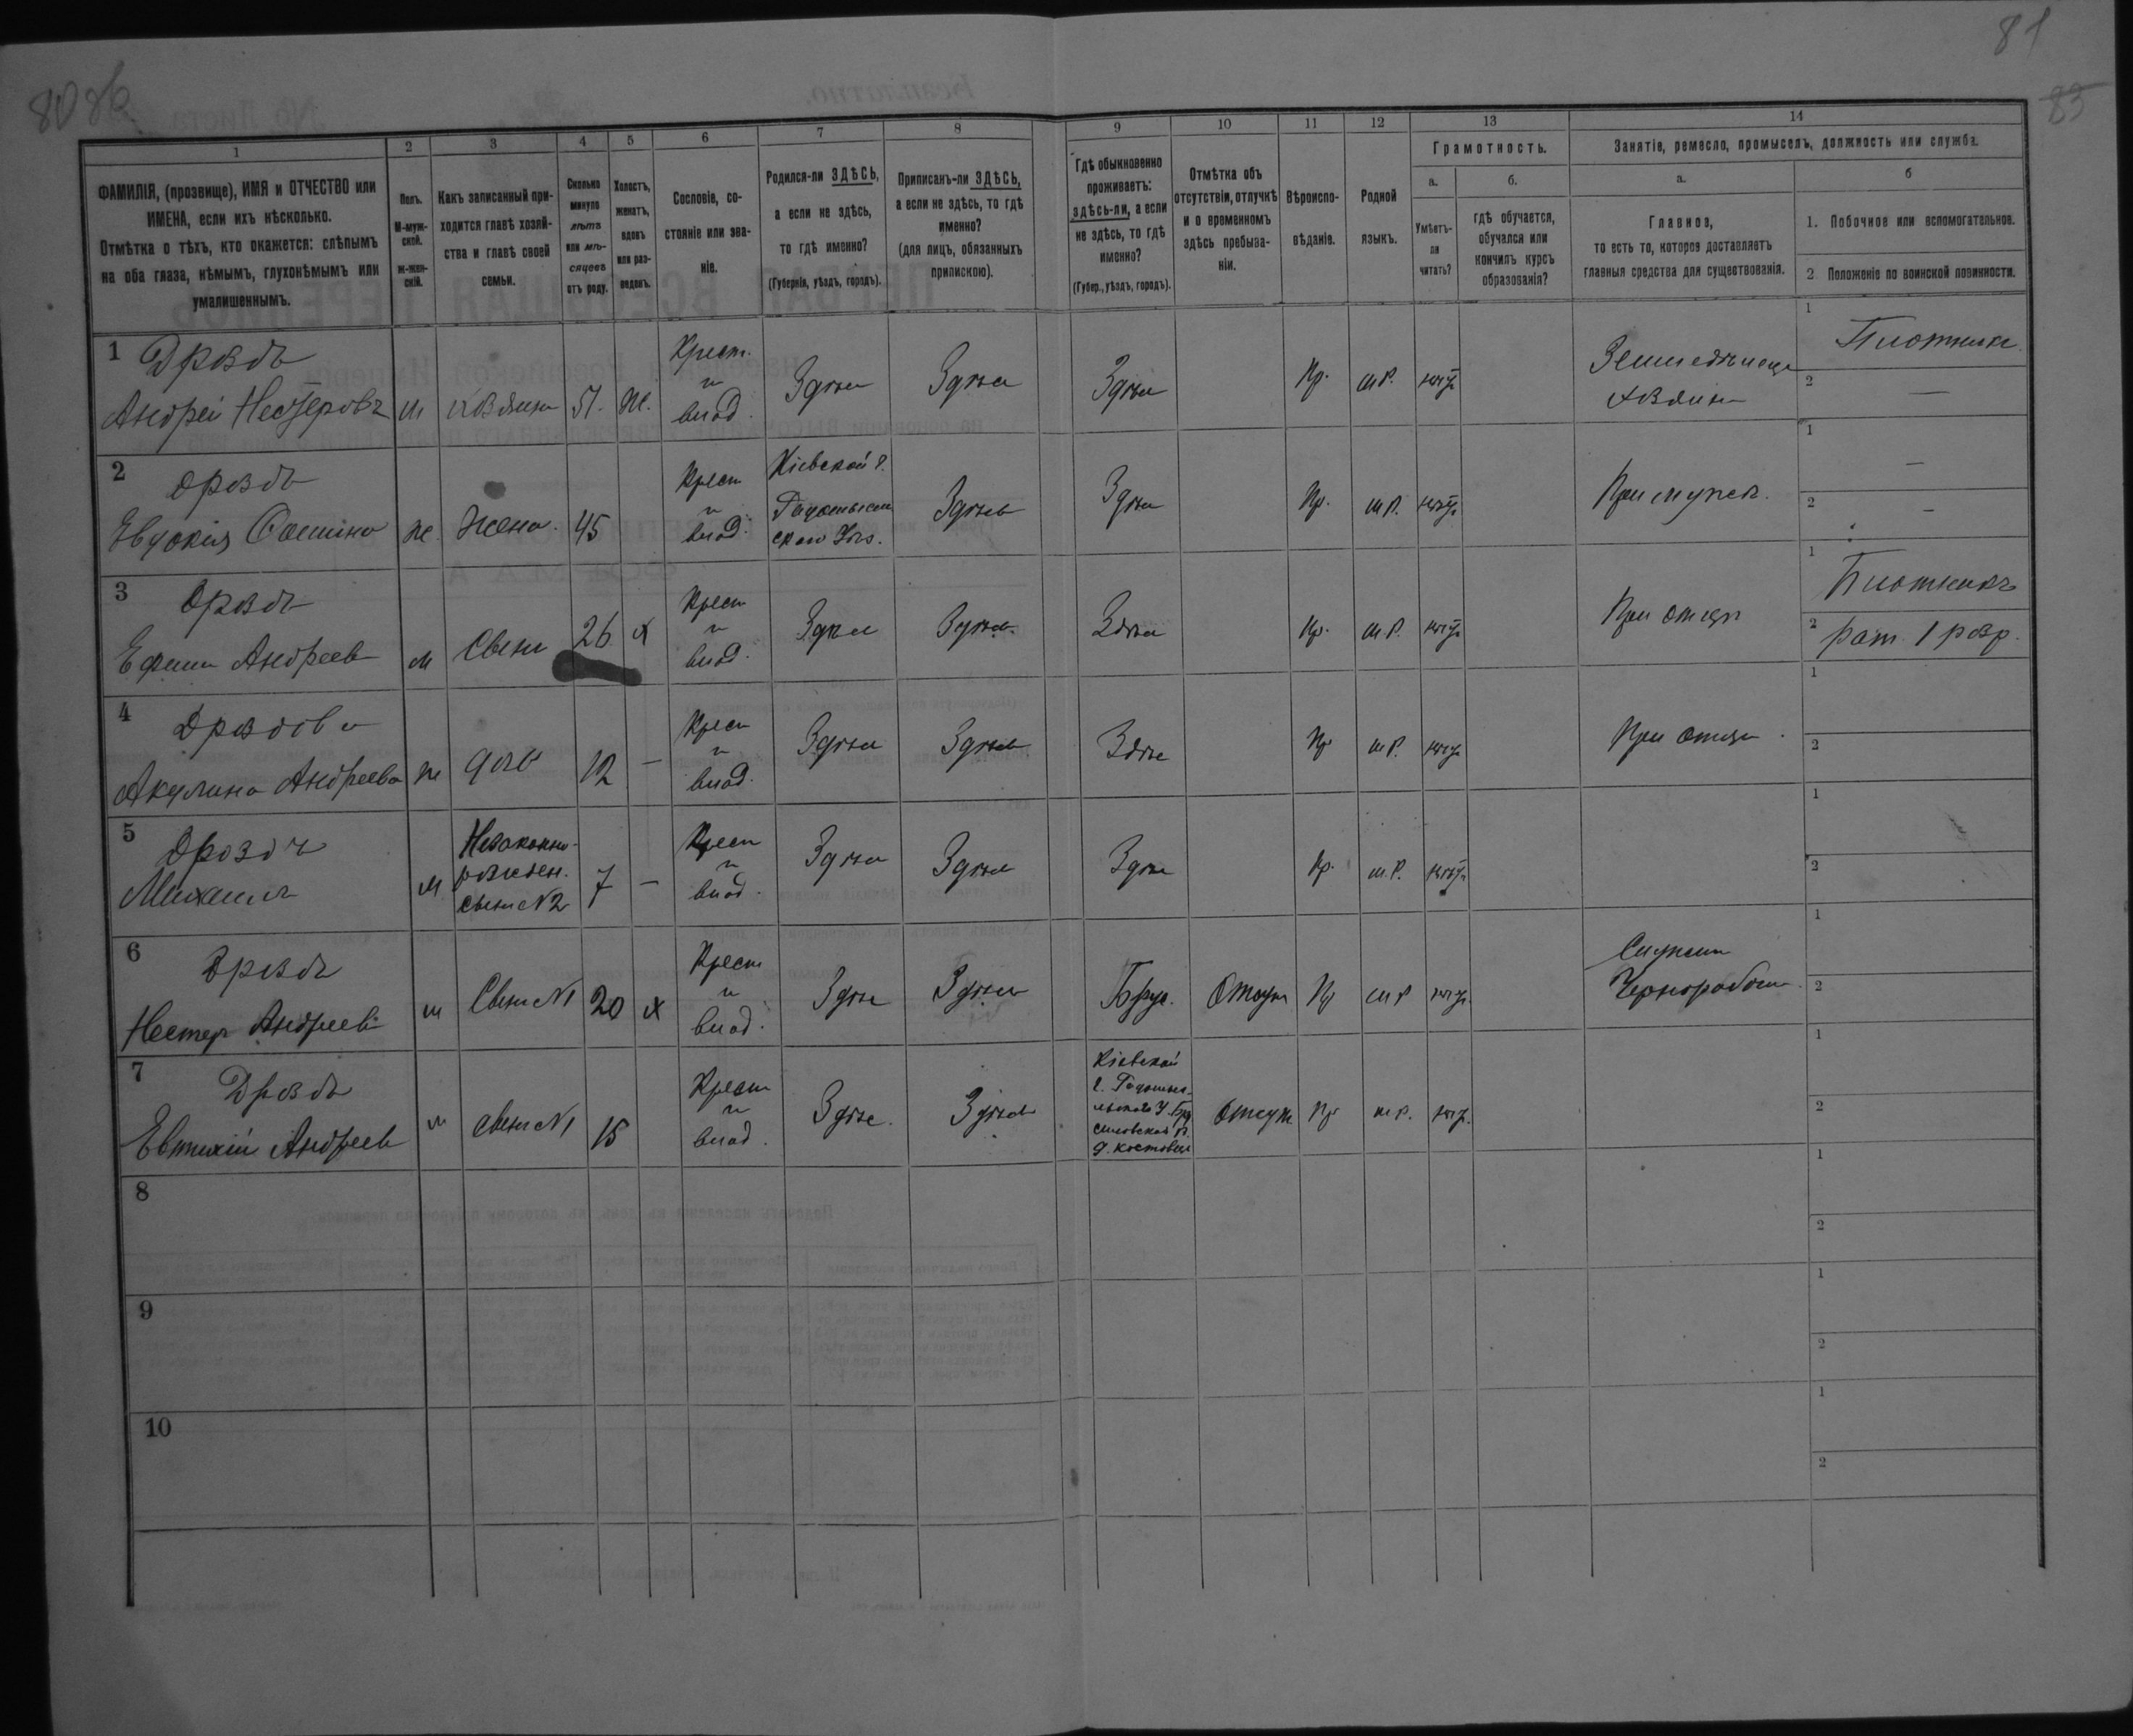 80 об
81
83
1
2
3
4
5
6
7
8
9
10
11
12
13
14
ФАМИЛІЯ, (прозвище), ИМЯ и ОТЧЕСТВО или
ИМЕНА, если ихъ нѣсколько.
Отмѣтка о тѣхъ, кто окажется: слѣпымъ
на оба глаза, нѣмымъ, глухонѣмымъ или
умалишеннымъ.
Полъ.
М-муж-
ской.
ж-жен-
скій.
Какъ записанный при-
ходится главѣ хозяй-
ства и главѣ своей
семьи.
Сколько
минуло
лѣтъ
или мѣ-
сяцевъ
отъ роду.
Холостъ,
женатъ,
вдовъ
или раз-
веденъ.
Сословіе, со-
стояніе или зва-
ніе.
Родился-ли ЗДѢСЬ,
а если не здѣсь,
то гдѣ именно?
(Губернія, уѣздъ, городъ).
Приписанъ-ли ЗДѢСЬ,
а если не здѣсь, то гдѣ
именно?
(для лицъ, обязанныхъ
припискою).
Гдѣ обыкновенно
проживаетъ:
здѣсь-ли, а если
не здѣсь, то гдѣ
именно?
(Губер., уѣздъ, городъ).
Отмѣтка объ
отсутствіи, отлучкѣ
и о временномъ
здѣсь пребыва-
ніи.
Вѣроиспо-
вѣданіе.
Родной
языкъ.
Грамотность.
а.
Умѣетъ-
ли
читать?
б.
гдѣ обучается,
обучался или
кончилъ курсъ
образованія?
Занятіе, ремесло, промыселъ, должность или служба.
а.
Главное,
то есть то, которое доставляетъ
главныя средства для существованія.
б
1. Побочное или вспомогательное.
2 Положеніе по воинской повинности.
1 Дроздъ
Андрей Нестеровъ
м
хозяинъ
51.
ж.
Крест.
и
влад.
Здѣсь
Здѣсь
Здѣсь
Пр.
м.р.
нѣтъ
Земледѣлецъ
хозяинъ
1
Плотникъ
2
—
2 Дроздъ
Евдокія
ж.
жена.
45
Крест
и
влад.
Кіевской г.
Радомысль
скаго Уѣз.
Здѣсь
Здѣсь
Пр.
м.р.
нѣтъ
При мужѣ.
1
—
2
—
3 Дроздъ
Ефимъ Андреев
м
Сынъ
26
х
Крест
и
влад.
Здѣсь
Здѣсь
Здѣсь
Пр.
м.р.
нѣтъ
При отцѣ
1
Плотникъ
2
рат. 1 разр.
4 Дроздова
Акулина Андреева
ж
дочь
12
—
Крест
и
влад.
Здѣсь
Здѣсь
Здѣсь
Пр
м.р.
нѣтъ
При отцѣ.
1
2
5 Дроздъ
Михаилъ
м
Незаконно-
рожден.
сынъ №2
7
—
Крест
и
влад.
Здѣсь
Здѣсь
Здѣсь
Пр.
м.р.
нѣтъ
1
2
6 Дроздъ
Нестеръ Андреев
м
Сынъ №1
20
х
Крест
и
влад.
Здѣсь
Здѣсь
Отсут
Пр
м.р
нѣтъ
Служит
Чернорабоч.
1
2
7 Дроздъ
Евтихій Андреев
м
сынъ №1
15
Крест
и
влад.
Здѣсь.
Здѣсь
Кіевской
г. Радомыс-
льскаго У.
Отсут
Пр
м.р.
нѣтъ
1
2
8
1
2
9
1
2
10
1
2